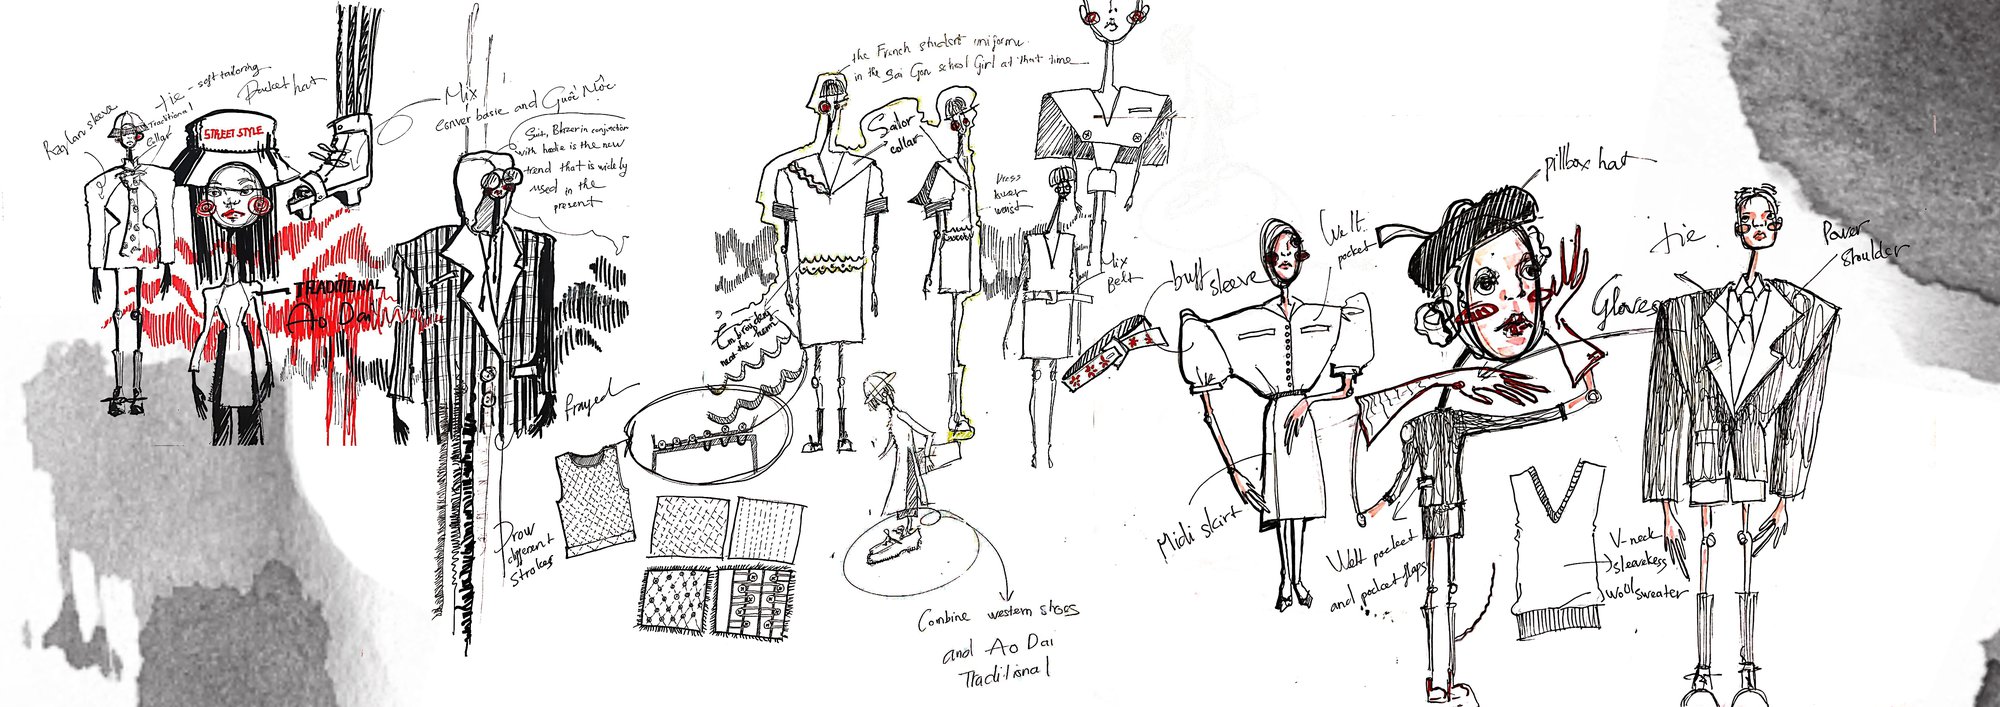 Raglan sleeve
tie - soft tailoring
Traditional
collar
Bucket hat
STREET STYLE
Mix
conver basic and Guốc Mộc
Suit, Blazer in conjunction
with hoodie is the new
trend that is widely
used in the
present
TRADITIONAL
Ao Dai
Frayed
Draw
different
strokes
the French student uniform
in the Sai Gon school Girl at that time
Sailor
collar
Dress
lower
waist
Mix
Belt
Embroidery
near the hem
Combine western shoes
and Ao Dai
Traditional
buff sleeve
Welt
pocket
pillbox hat
Midi skirt
Gloves
tie
Power
shoulder
Welt pocket
and pocket flaps
V-neck
sleeveless
wool sweater